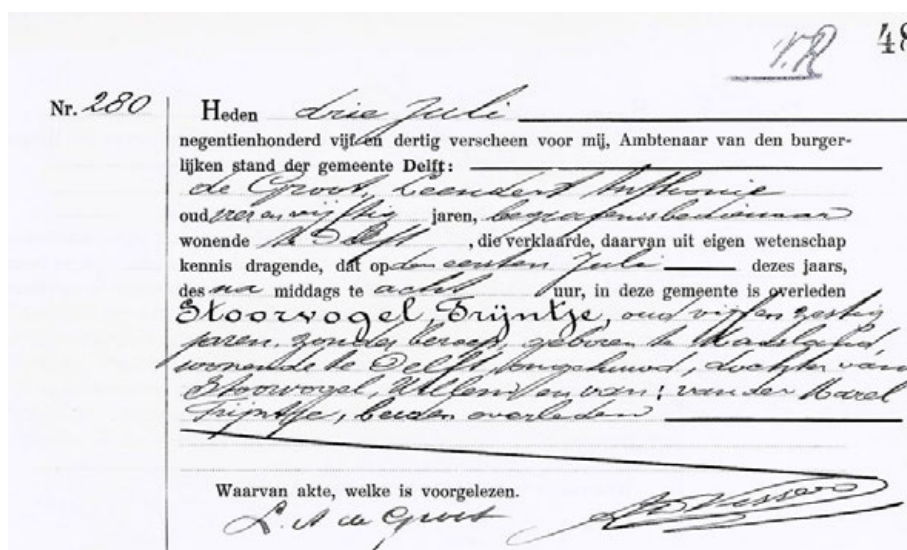 V.R. 48
Nr. 280
Heden drie Juli
negentienhonderd vijf en dertig verscheen voor mij, Ambtenaar van den burger-
lijken stand der gemeente Delft:
de Groot, Leendert Anthonie
oud vier en vijftig jaren, begrafenisbedienaar
wonende te Delft, die verklaarde, daarvan uit eigen wetenschap
kennis dragende, dat op den eersten Juli dezes jaars,
des na middags te acht uur, in deze gemeente is overleden
Stoorvogel, Trijntje, oud vijf en zestig
jaren, zonder beroep, geboren te Maasland
wonende te Delft, ongehuwd, dochter van
Stoorvogel, Willem en van: van der Marel
Trijntje, beiden overleden
Waarvan akte, welke is voorgelezen.
L. A de Groot
Visser